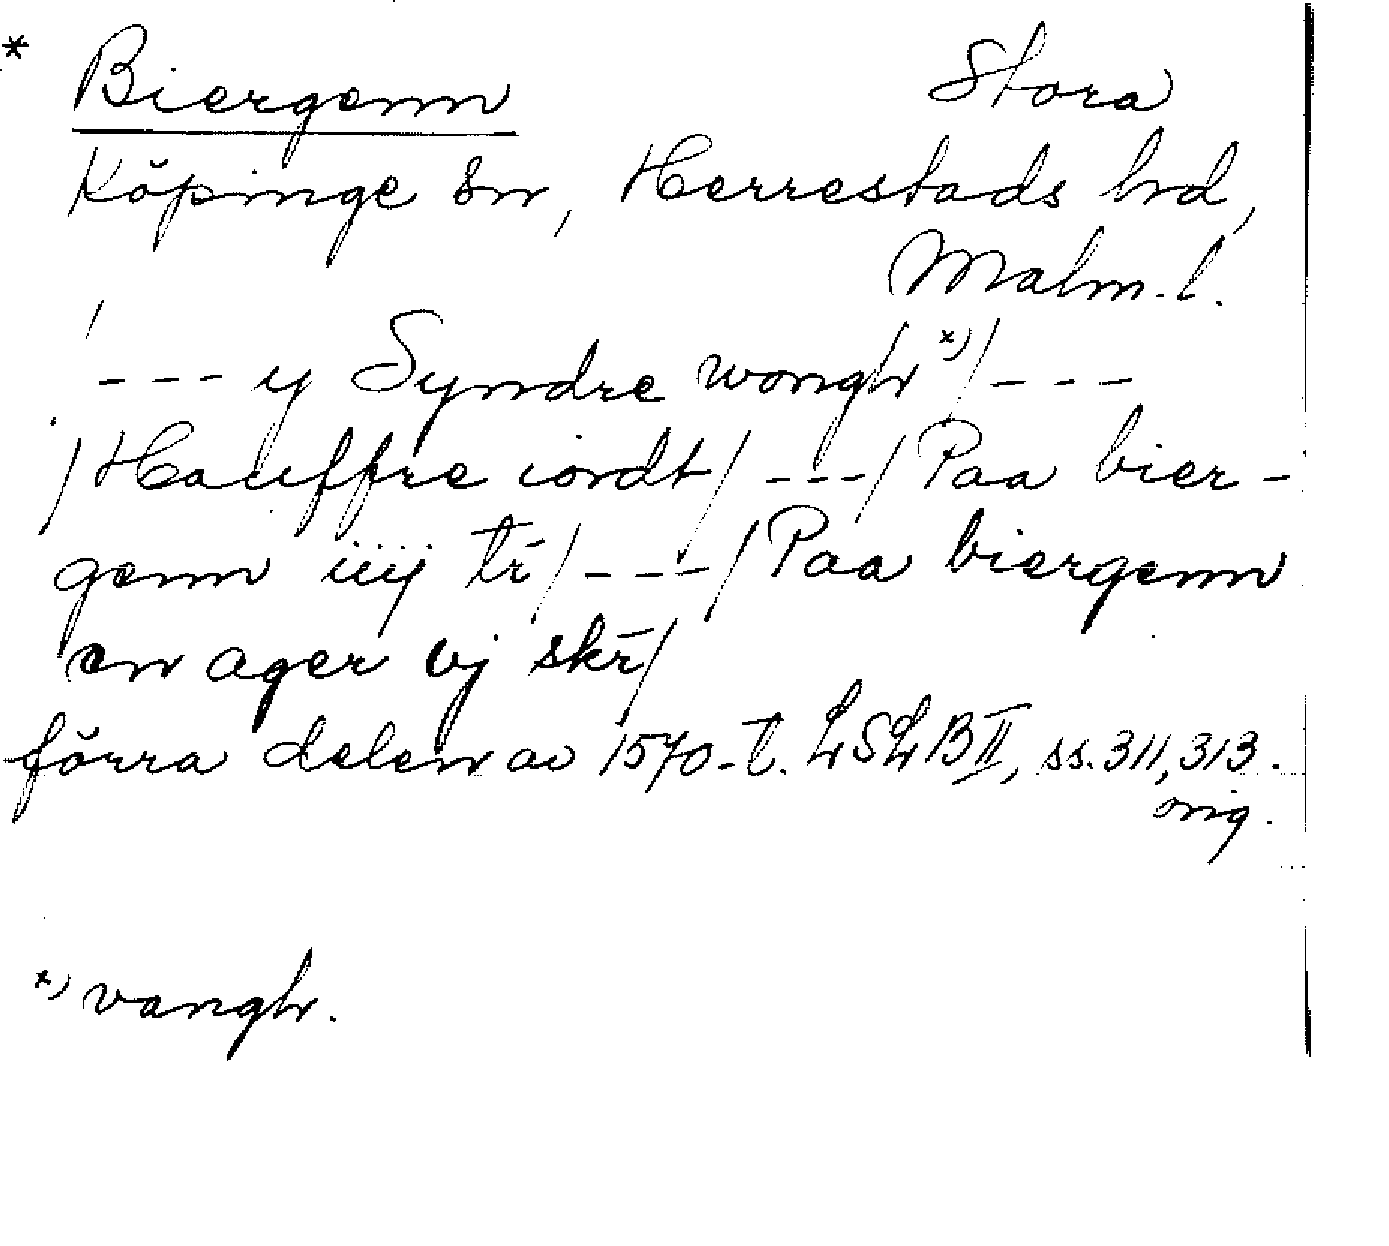 * Biergenn Stora
Köpinge sn, Herrestads hrd,
Malm. l.
--- y Syndre wongh *)/ ---
/Hauffre iordt/ ---/Paa bier-
genn iiij tr̄/ ---/Paa biergenn
en ager vj skr̄/
förra delen av 1570-t. LSLB II, ss. 311, 313.
orig.
*) vangh.